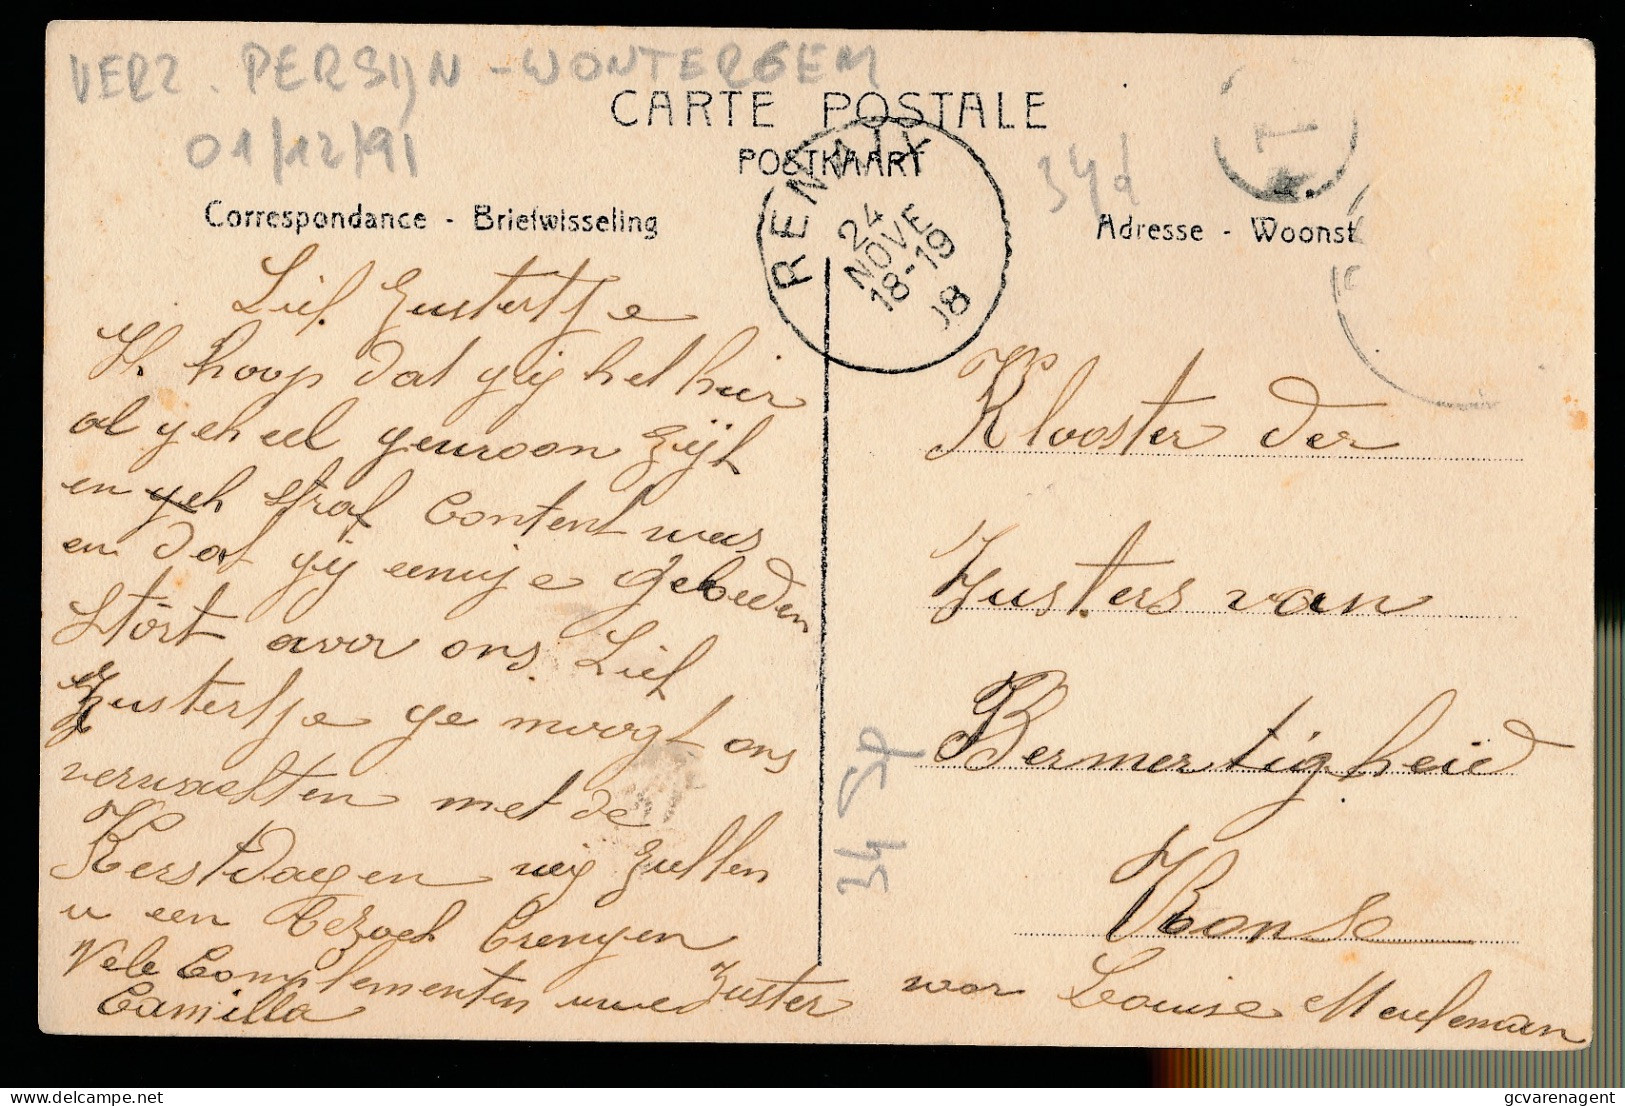 VERZ. PERSIJN - WONTERGEM
01/12/91
CARTE POSTALE
POSTKAART
34d
T
Correspondance - Briefwisseling
Adresse - Woonst
RENAIX
24
NOVE
18-19
08
Lief Zustertje
Ik hoop dat gij het hier
al geheel gewoon zijt
en geh straf Content was
en dat gij eenige Gebeden
Stort avor ons Lief
Zustertje ge moogt ons
verwachten met de
Kerstdagen wij zullen
u een bezoek brengen
Vele Complementen uwe Zuster
Camilla
34 Sp
Klooster der
Zusters van
Bermertigheid
Ronse
voor Louise Meuleman
gcvarenagent